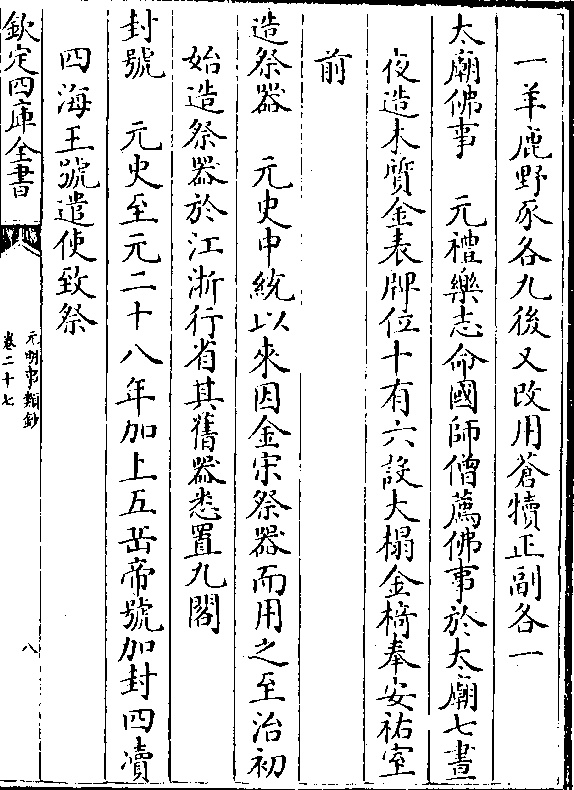 一羊鹿野豕各九後又改用蒼犢正副各一
太廟佛事　元禮樂志命國師僧薦佛事於太廟七晝
夜造木質金表牌位十有六設大榻金椅奉安祐室
前
造祭器　元史中統以來因金宋祭器而用之至治初
始造祭器於江浙行省其舊器悉置九閣
封號　元史至元二十八年加上五岳帝號加封四瀆
四海王號遣使致祭
欽定四庫全書
元明事類鈔
卷二十七
八